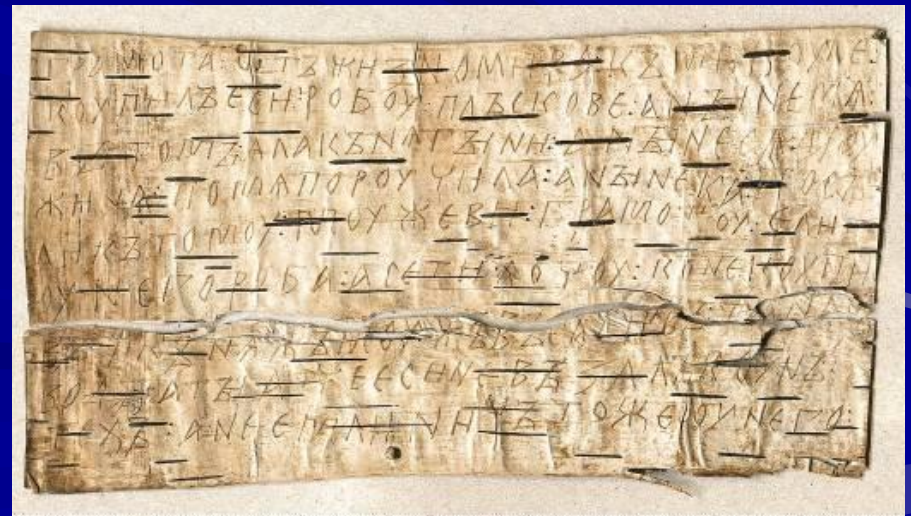 грамота : ѡтъ жизномира : къ микоуле :
коупилъ еси : робоу : плъскове : а нъıне мѧ :
въ томъ : ѧла кънѧгъıни : а нъıне сѧ дроу
жина : по мѧ пороучила : а нъıне ка : посъ
ли къ томоу : моужеви : грамотоу : ели
оу него роба : а се ти хочоу : коне коупи
кънѧжъ моужъ въса
водъı : а тъı атче еси не възалъ коунъ :
техъ : а не емли : ничъто же оу него :